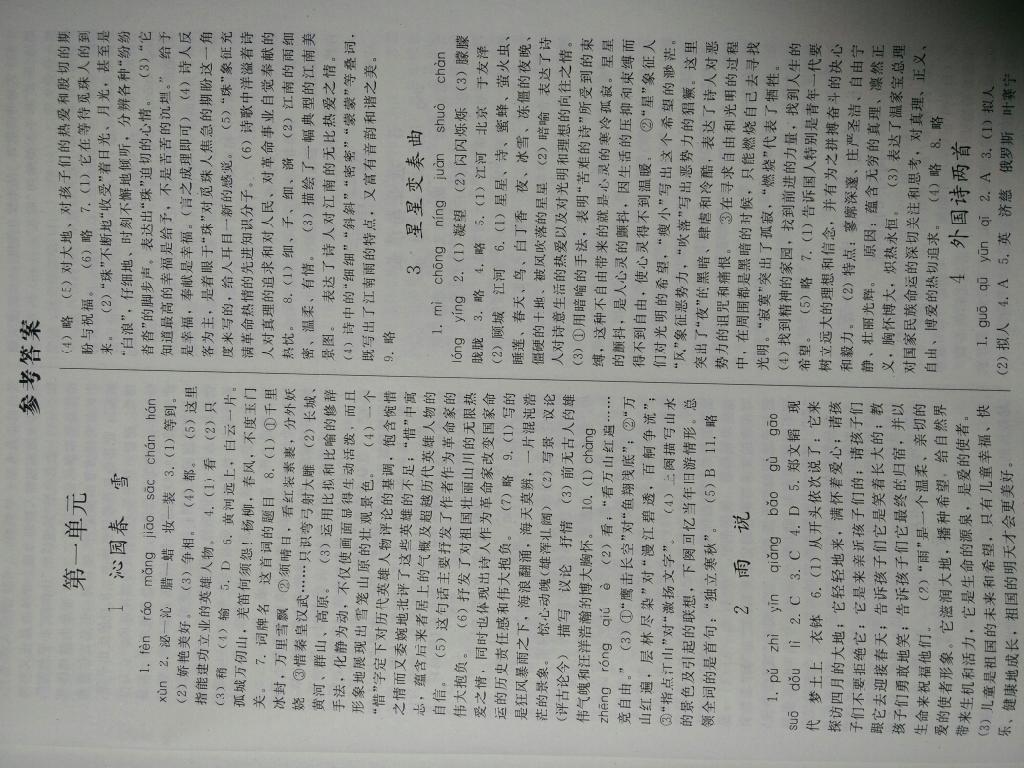 参考答案
第一单元
1 沁园春 雪
1. fēn ráo mǎng jiāo sāo chán hán
xùn 2. 泌—沁 腊—蜡 妆—装 3. (1)等到。
(2)娇艳美好。 (3)争相。 (4)都。 (5)这里
指能建功立业的英雄人物。 4. (1)看 (2)只
(3)稍 (4)输 5. D 5. 黄河远上,白云一片。
孤城万仞山,羌笛何须怨!杨柳,春风,不度玉门
关。 7. 词牌名 这首词的题目 8. (1)①千里
冰封,万里雪飘 ②须晴日,看红装素裹,分外妖
娆 ③惜秦皇汉武……只识弯弓射大雕 (2)长城、
黄河、群山、高原。 (3)运用比拟和比喻的修辞
手法,化静为动,不仅使画面显得生动活泼,而且
形象地展现出雪笼山原的壮观景色。 (4)一个
“惜”字定下对历代英雄人物评论的基调,饱含惋惜
之情而又委婉地批评了这些英雄的不足;“惜”中寓
志,蕴含后来者居上的气慨及超越历代英雄人物的
自信。 (5)这句话主要抒发了作者作为革命家的
伟大抱负。 (6)抒发了对祖国壮丽山川的无限热
爱之情,同时也体现出诗人作为革命家改变国家命
运的历史责任感和伟大抱负。 (7)略 9. (1)写的
是狂风暴雨之下,海浪翻涌,海天莫辨,一片混沌浩
茫的景象。 惊心动魄雄浑壮阔 (2)写景 议论
(评古论今) 描写 议论 抒情 (3)前无古人的雄
伟气魄和汪洋浩瀚的博大胸怀。 10. (1)chàng
zhēng róng qiú è (2)看;“看万山红遍……
竞自由。” (3)①“鹰击长空”对“鱼翔浅底”;②“万
山红遍,层林尽染”对“漫江碧透,百舸争流”;
③“指点江山”对“激扬文字”。 (4)上阕描写山水
的景色及引起的联想,下阕回忆当年日游情形。总
领全词的是首句:“独立寒秋”。 (5)B 11. 略
2 雨 说
1. pǔ zhì yīn qiǎng bǎo gù gāo
suō dǒu lì 2. C 3. C 4. D 5. 郑文韬 现
代 梦土上 衣钵 6. (1)从开头依次说了:它来
探访四月的大地;它轻轻地来,满怀着爱心;请孩
子们不要拒绝它;它是来亲近孩子们的;请孩子们
跟它去迎接春天;告诉孩子们它是笑着长大的;教
孩子们勇敢地笑;告诉孩子们它最终的归宿,并以
生命来祝福他们。 (2)“雨”是一个温柔、亲切的
爱的使者形象。它滋润大地,播种希望,给自然界
带来生机和活力,它是生命的源泉,是爱的使者。
(3)儿童是祖国的未来和希望,只有儿童幸福、快
乐、健康地成长,祖国的明天才会更美好。
(4)略 (5)对大地,对孩子们的热爱和殷切的期
盼与祝福。 (6)略 7. (1)它在等待觅珠人的到
来。 (2)“珠”不断地“收受”着日光、月光,甚至是
“白浪”,仔细地、时刻不懈地倾听,分辨各种“纷纷
沓沓”的脚步声。表达出“珠”迫切的心情。 (3)“它
知道最高的幸福是给予,不是苦苦的沉埋。” 给予
是幸福,奉献是幸福。(言之成理即可) (4)诗人反
客为主,是着眼于“珠”对觅珠人焦急的期盼这一角
度来写的,给人耳目一新的感觉。 (5)“珠”象征充
满革命热情的先进知识分子。 (6)诗歌中洋溢着诗
人对真理的追求和对人民、对革命事业自觉奉献的
热忱。 8. (1)细、子、细、涵 (2)江南的雨细
密、温柔、有情。 (3)描绘了一幅典型的江南美
景图。 表达了诗人对江南的无比热爱之情。
(4)诗中的“细细”“斜斜”“密密”“蒙蒙”等叠词,
既写出了江南雨的特点,又富有音韵和谐之美。
9. 略
3 星星变奏曲
1. mì chōng níng juàn shuò chàn
lóng yíng 2. (1)凝望 (2)闪闪烁烁 (3)朦朦
胧胧 3. 略 4. 略 5. (1)江河 北京 于友泽
(2)顾城 江河 (6)(1)星星、诗、蜜蜂、萤火虫、
睡莲、春天、鸟、白丁香 夜、冰雪、冻僵的夜晚、
僵硬的土地、被风吹落的星星 (2)暗喻 表达了诗
人对诗意生活的热爱以及对光明和理想的向往之情。
(3)①用暗喻的手法,表明“苦难的诗”所受到的束
缚,这种不自由带来的就是心灵的寒冷孤寂。星星
的颤抖,是人心灵的颤抖,因生活的压抑和束缚而
得不到自由,使心灵得不到温暖。 ②“星”象征人
们对光明的希望,“瘦小”写出这个希望的渺茫。
“风”象征恶势力,“吹落”写出恶势力的猖獗。这里
突出了“夜”的黑暗、肆虐和冷酷,表达了诗人对恶
势力的诅咒和痛恨。 ③在寻求自由和光明的过程
中,在周围都是黑暗的时候,只能燃烧自己去寻找
光明。“寂寞”突出了孤寂,“燃烧”代表了牺牲。
(4)找到精神的家园,找到前进的力量,找到人生的
希望。 (5)略 7. (1)告诉国人特别是青年一代要
树立远大的理想和信念,并有为之拼搏奋斗的决心
和毅力。 (2)特点:寥廓深邃、庄严圣洁、自由宁
静、壮丽光辉。 原因:蕴含无穷的真理,凛然正
义,胸怀博大,炽热永恒。 (3)表达了温家宝总理
对国家民族命运的深切关注和思考,对真理、正义、
自由、博爱的热切追求。 (4)略 8. 略
4 外国诗两首
1. guō qū yūn qǐ 2. A 3. (1)拟人
(2)拟人 4. A 5. 英 济慈 俄罗斯 叶赛宁